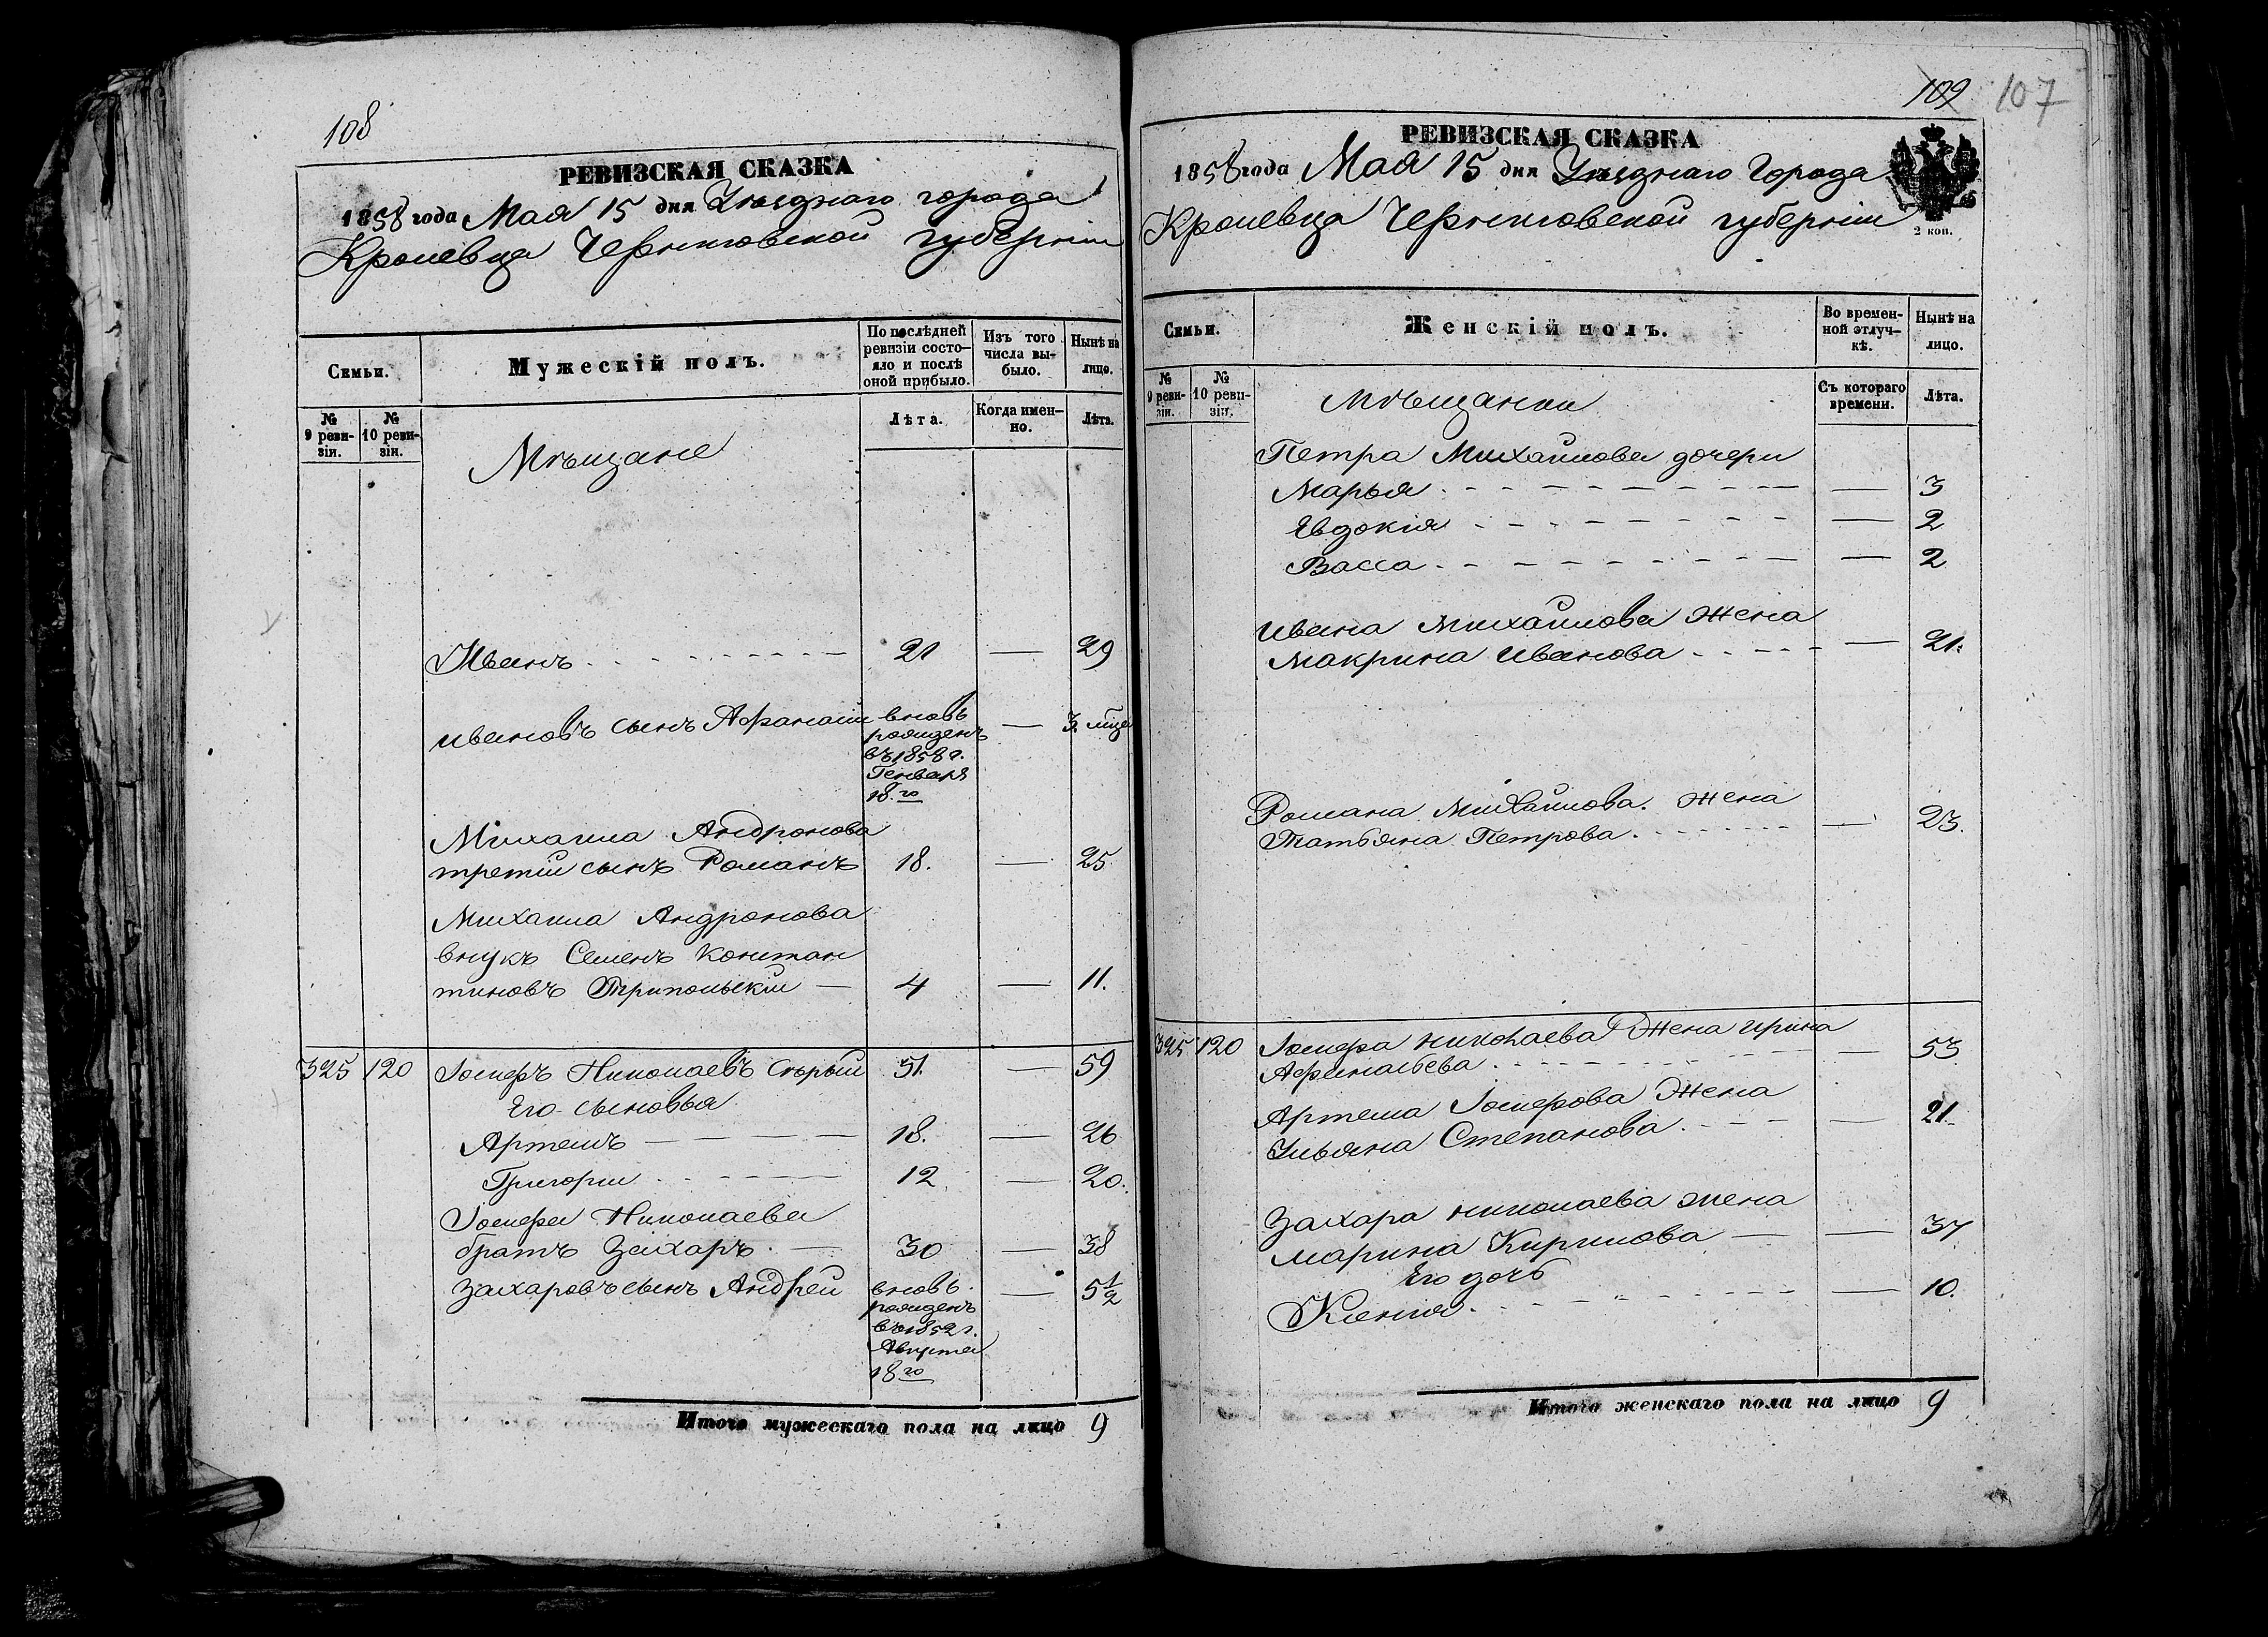 108
РЕВИЗСКАЯ СКАЗКА
1858 года Мая 15 дня Уѣзднаго города
Кролевца Черниговской губерніи
Семьи.
Мужескій полъ.
По послѣдней ревизіи состояло и послѣ оной прибыло.
Изъ того числа выбыло.
Нынѣ на лицо.
№ 9 ревизіи.
№ 10 ревизіи.
Мѣщане
Лѣта.
Когда именно.
Лѣта.
Иванъ 21 — 29
Ивановъ сынъ Афанасій вновь — 3 мѣся
рожденъ
въ 1858 г.
Генваря
18го
Михаила Андронова
третій сынъ Романъ 18. — 25
Михаила Андронова
внукъ Семенъ Констан
тиновъ Трипольскій — 4 — 11.
325 120 Іосифъ Николаевъ Сѣрый 51. — 59
Его сыновья
Артемъ 18. — 26
Григорій 12. — 20.
Іосифа Николаева
братъ Захаръ. — 30 — 38
Захаровъ сынъ Андрей вновь — 5 1/2
рожденъ
въ 1852 г.
Августа
18го
Итого мужескаго пола на лицо 9
109 107
РЕВИЗСКАЯ СКАЗКА
1858 года Мая 15 дня Уѣзднаго Города
Кролевца Черниговской губерніи
2 коп.
Семьи.
Женскій полъ.
Во временной отлучкѣ.
Нынѣ на лицо.
№ 9 ревизіи.
№ 10 ревизіи.
Мѣщанки
Съ котораго времени.
Лѣта.
Петра Михайлова дочери
Марья — 3
Евдокія — 2
Васса — 2
Ивана Михайлова жена
Макрина Иванова — 21.
Романа Михайлова жена
Татьяна Петрова — 23.
325 120 Іосифа Николаева жена Ирина
Афанасьева — 53
Артема Іосифова жена
Ульяна Степанова — 21.
Захара Николаева жена
Марина Кирилова — 37
Его дочь
Ксенія — 10.
Итого женскаго пола на лицо 9